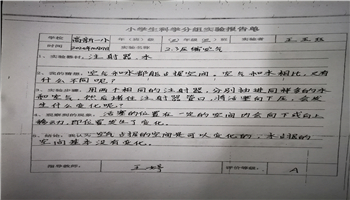 小学生科学分组实验报告单
学校 高新一小 年（班） 实验者 王
时间 实验名称 2.3压缩空气
1、实验器材：注射器、水
2、我的猜想：空气和水都能占据空间。空气和水相比，又有
什么不同呢？
3、实验步骤：用两个相同的注射器，分别抽进同样多的水
和空气，然后堵住注射器管口，将活塞向下压，会发
生什么变化呢？
4、观察到的现象：活塞的位置在一定的空间内会向下或向上
移动，即位置发生了变化。
5、结论：我认为空气占据的空间是可以变化的，水占据的
空间基本没有变化。
指导教师： 王婷 评价等级： A